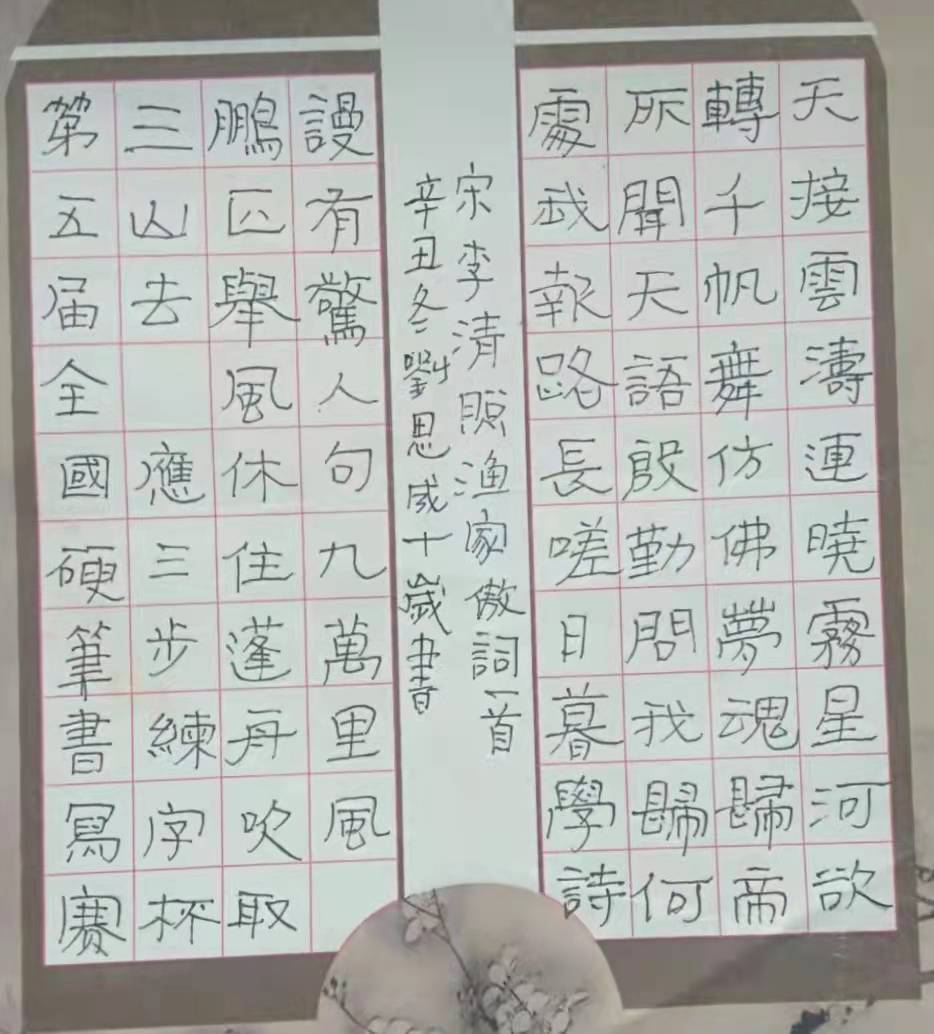 天接雲濤連曉霧星河欲
轉千帆舞仿佛夢魂歸帝
所聞天語殷勤問我歸何
處我報路長嗟日暮學詩
宋李清照渔家傲詞一首
辛丑冬劉思成十歲書
謾有驚人句九萬里風
鵬正舉風休住蓬舟吹取
三山去 應三步練字杯
第五届全國硬筆書寫賽